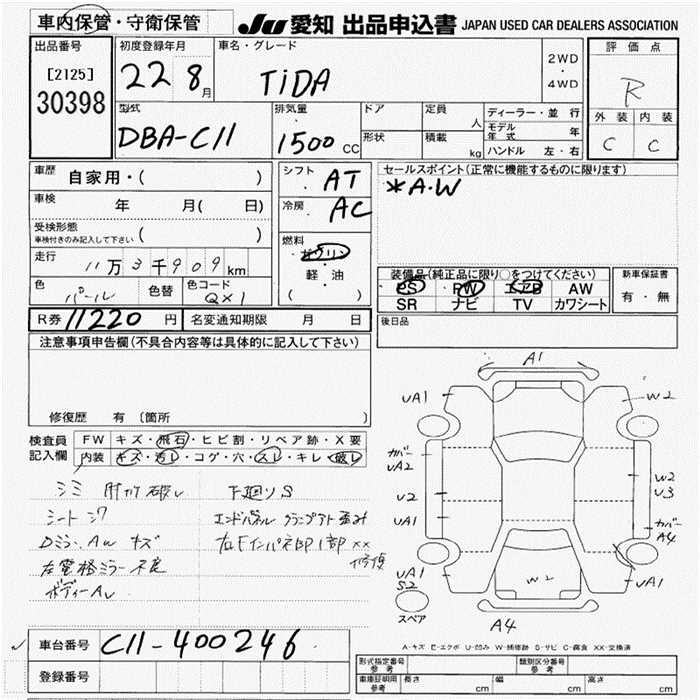 車内保管・守衛保管
JU 愛知 出品申込書 JAPAN USED CAR DEALERS ASSOCIATION
出品番号
[2125]
30398
初度登録年月
22 8月
車名・グレード
TiDA
2WD
・
4WD
評価点
R
外装 内装
C C
型式
DBA-C11
排気量
1500 CC
ドア
形状
定員
人
積載
kg
ディーラー・並行
モデル年式 年
ハンドル 左・右
車歴
自家用・( )
車検
年 月( 日)
受検形態
車検付きのみ記入して下さい ( )
走行
11万3千909km
色
パール
色替
色コード
QX1
シフト
AT
冷房
AC
燃料
ガソリン
軽・油
( )
セールスポイント(正常に機能するものに限ります)
*A・W
装備品(純正品に限り○をつけてください)
PS PW エアB AW
SR ナビ TV カワシート
新車保証書
有・無
R券 11220 円
名変通知期限 月 日
後日品
注意事項申告欄(不具合内容等は具体的に記入して下さい)
修復歴 有 〔箇所
検査員
記入欄
FW キズ・飛石・ヒビ割・リペア跡・X要
内装 キズ・汚レ・コゲ・穴・スレ・キレ・破レ
シミ 肘カケ破レ
シート シワ
Dミラー AW キズ
左電格ミラー不良
ボディーAU
下廻りS
エンドパネル
右Fインパネ部1部 XX
修復
A1
UA1
W2
カバー
UA2
U2
UA1
W2
U3
カバー
A4
UA1
S2
W2
UA1
スペア
A4
A-キズ E-エクボ U-凹み W-補修跡 S-サビ C-腐食 XX-交換済
車台番号
C11-400246
登録番号
形式指定番号
参考
類別区分番号
参考
車庫証明用
参考
長さ cm
幅 cm
高さ cm